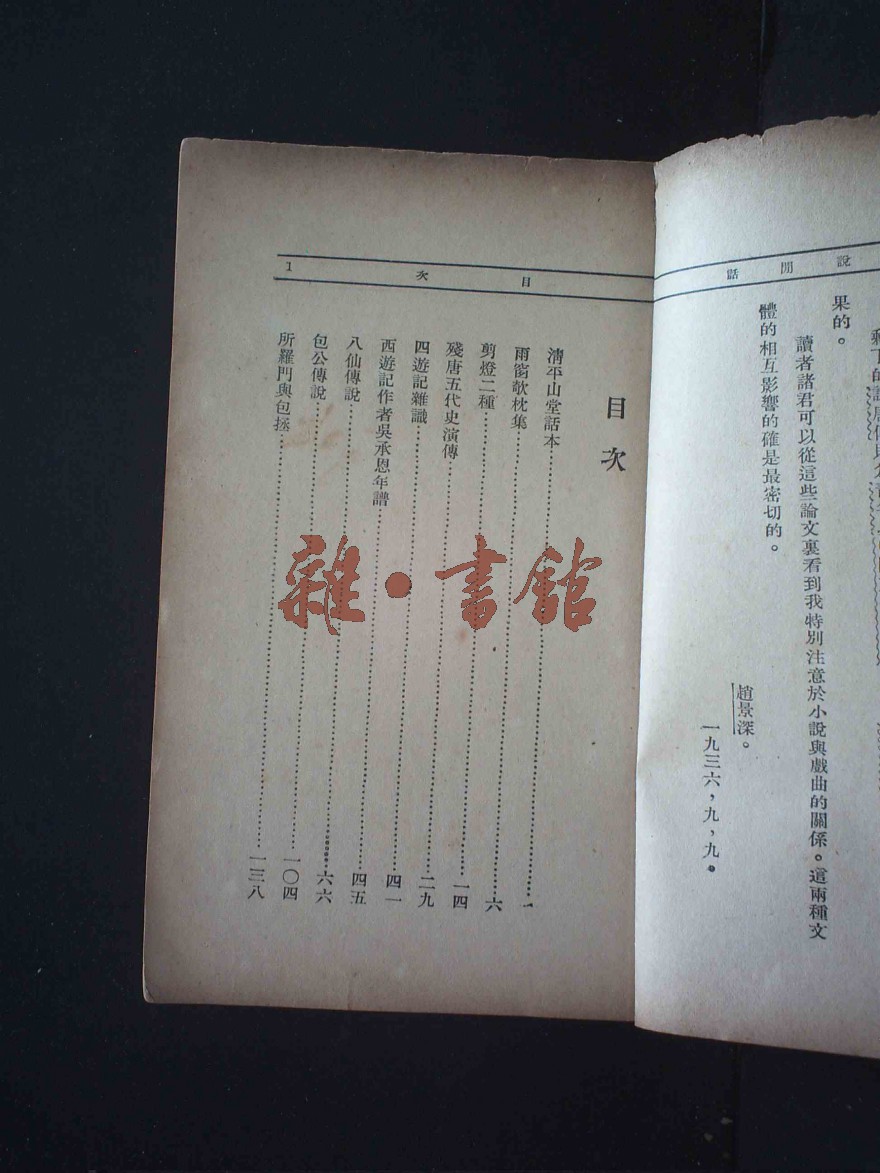 說閒話
果的。
讀者諸君可以從這些論文裏看到我特別注意於小說與戲曲的關係。這兩種文
體的相互影響的確是最密切的。
趙景深。
一九三六，九，九。
目次 1
目次
清平山堂話本…………一
雨窗欹枕集…………六
剪燈二種…………一四
殘唐五代史演傳…………二九
四遊記雜識…………四一
西遊記作者吳承恩年譜…………四五
八仙傳說…………六六
包公傳說…………一〇四
所羅門與包拯…………一三八
雜·書館